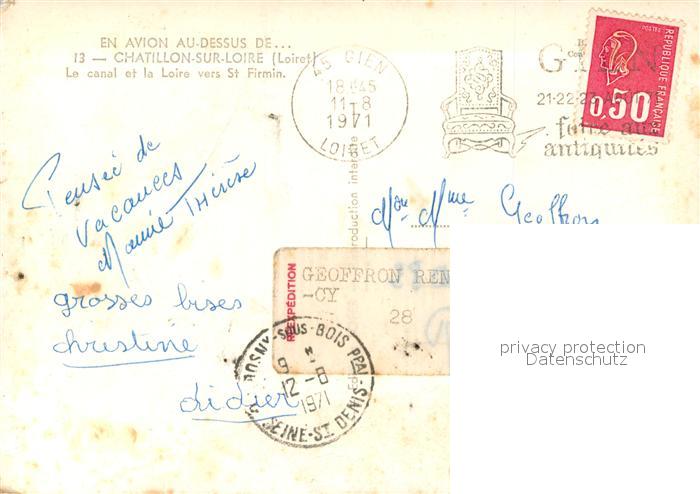 EN AVION AU-DESSUS DE...
13 — CHATILLON-SUR-LOIRE (Loiret)
Le canal et la Loire vers St Firmin.
45 GIEN
18H45
11-8
1971
LOIRET
GIEN
21-22-23
foire aux
antiquités
POSTES
RÉPUBLIQUE FRANÇAISE
0,50
Pensée de
vacances
Marie Thérèse
grosses bises
christine
didier
Mon. Mme Geoffron
reproduction interdite
RÉEXPÉDITION
GEOFFRON REN
-CY
28
ROSNY-SOUS-BOIS PPAL
9 H
12-8
1971
SEINE-ST-DENIS
privacy protection
Datenschutz